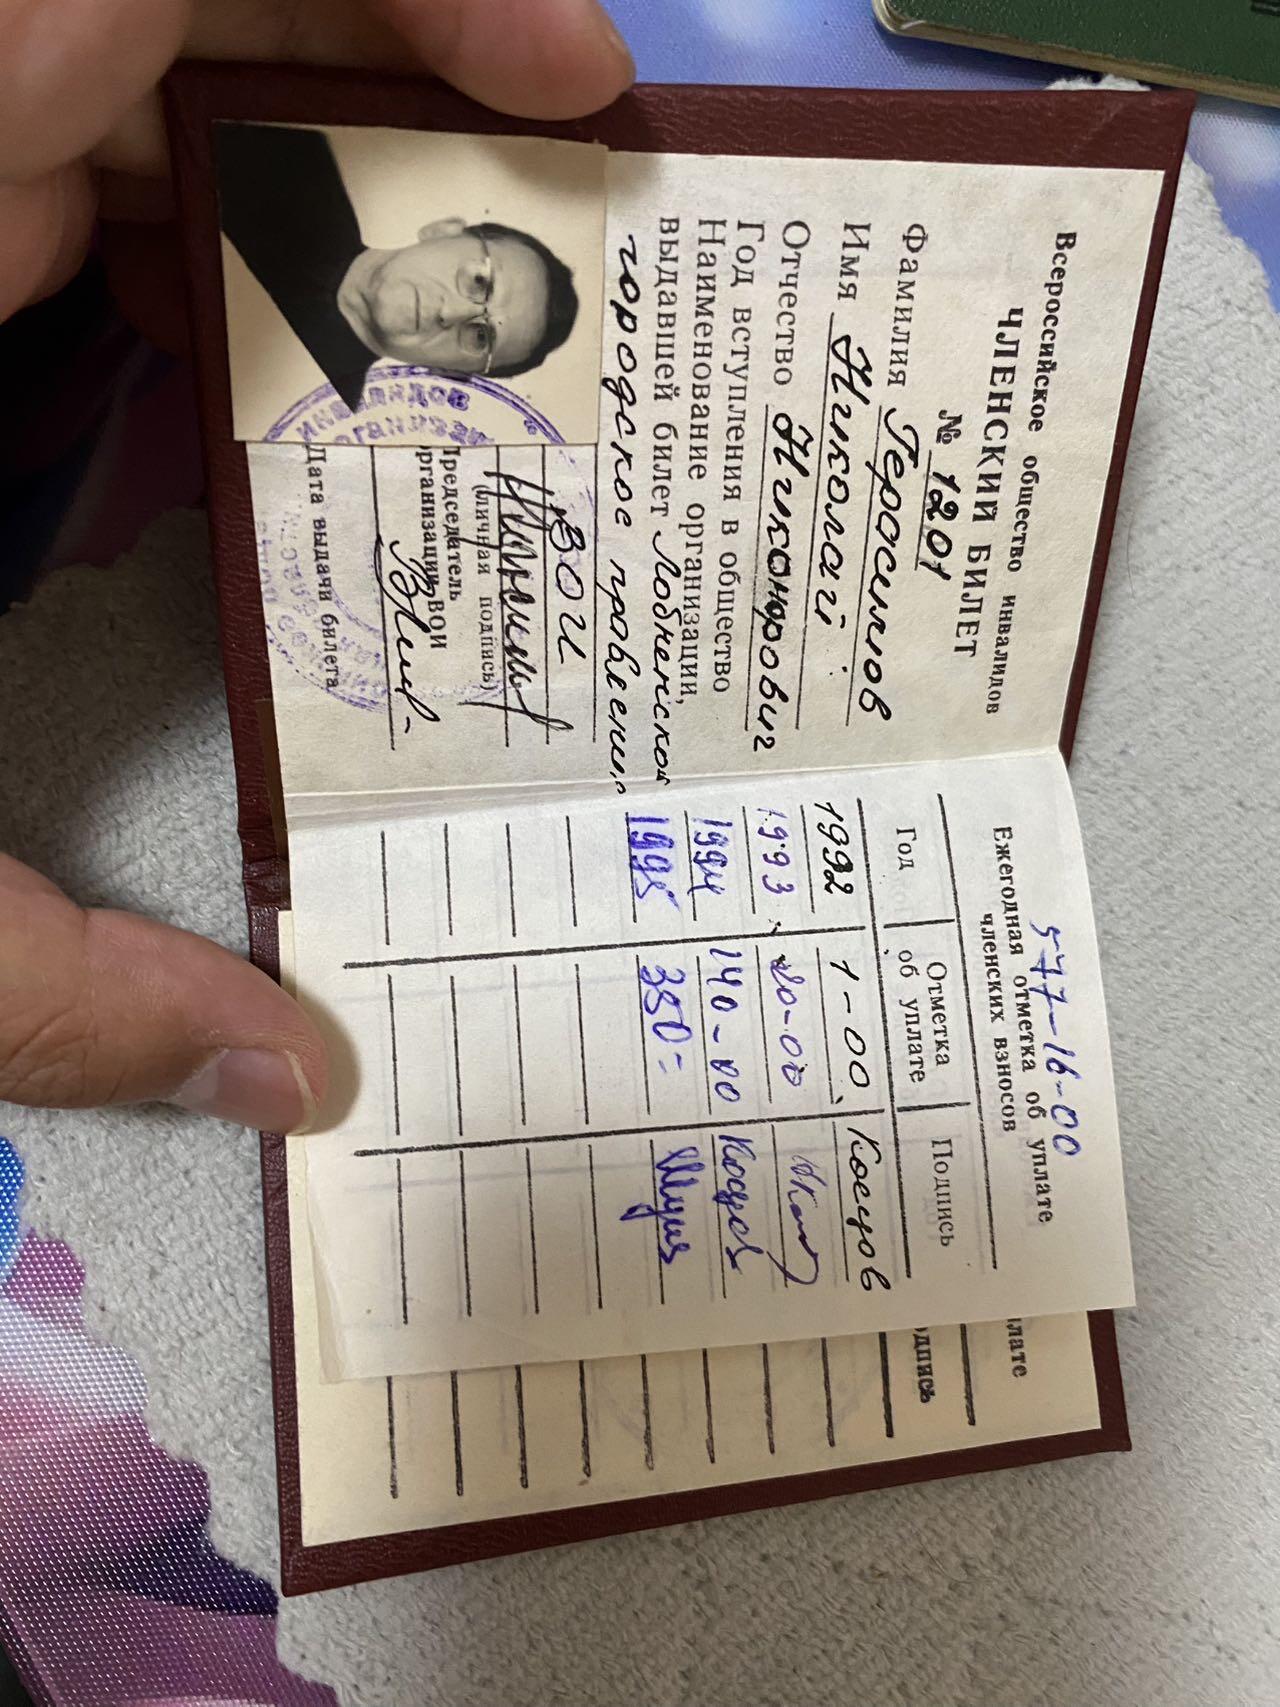 Всероссийское общество инвалидов
ЧЛЕНСКИЙ БИЛЕТ
№ 1201
Фамилия Герасимов
Имя Николай
Отчество Никонорович
Год вступления в общество
Наименование организации,
выдавшей билет Лобненское
городское правление
ВОИ
(личная подпись)
Председатель
организации ВОИ
Дата выдачи билета
инвалидов
577-16-00
Ежегодная отметка об уплате
членских взносов
Год Отметка об уплате Подпись
1992 1-00 Косцов
1993 20-00
1994 140-00 Косцов
1995 350=
уплате
подпись